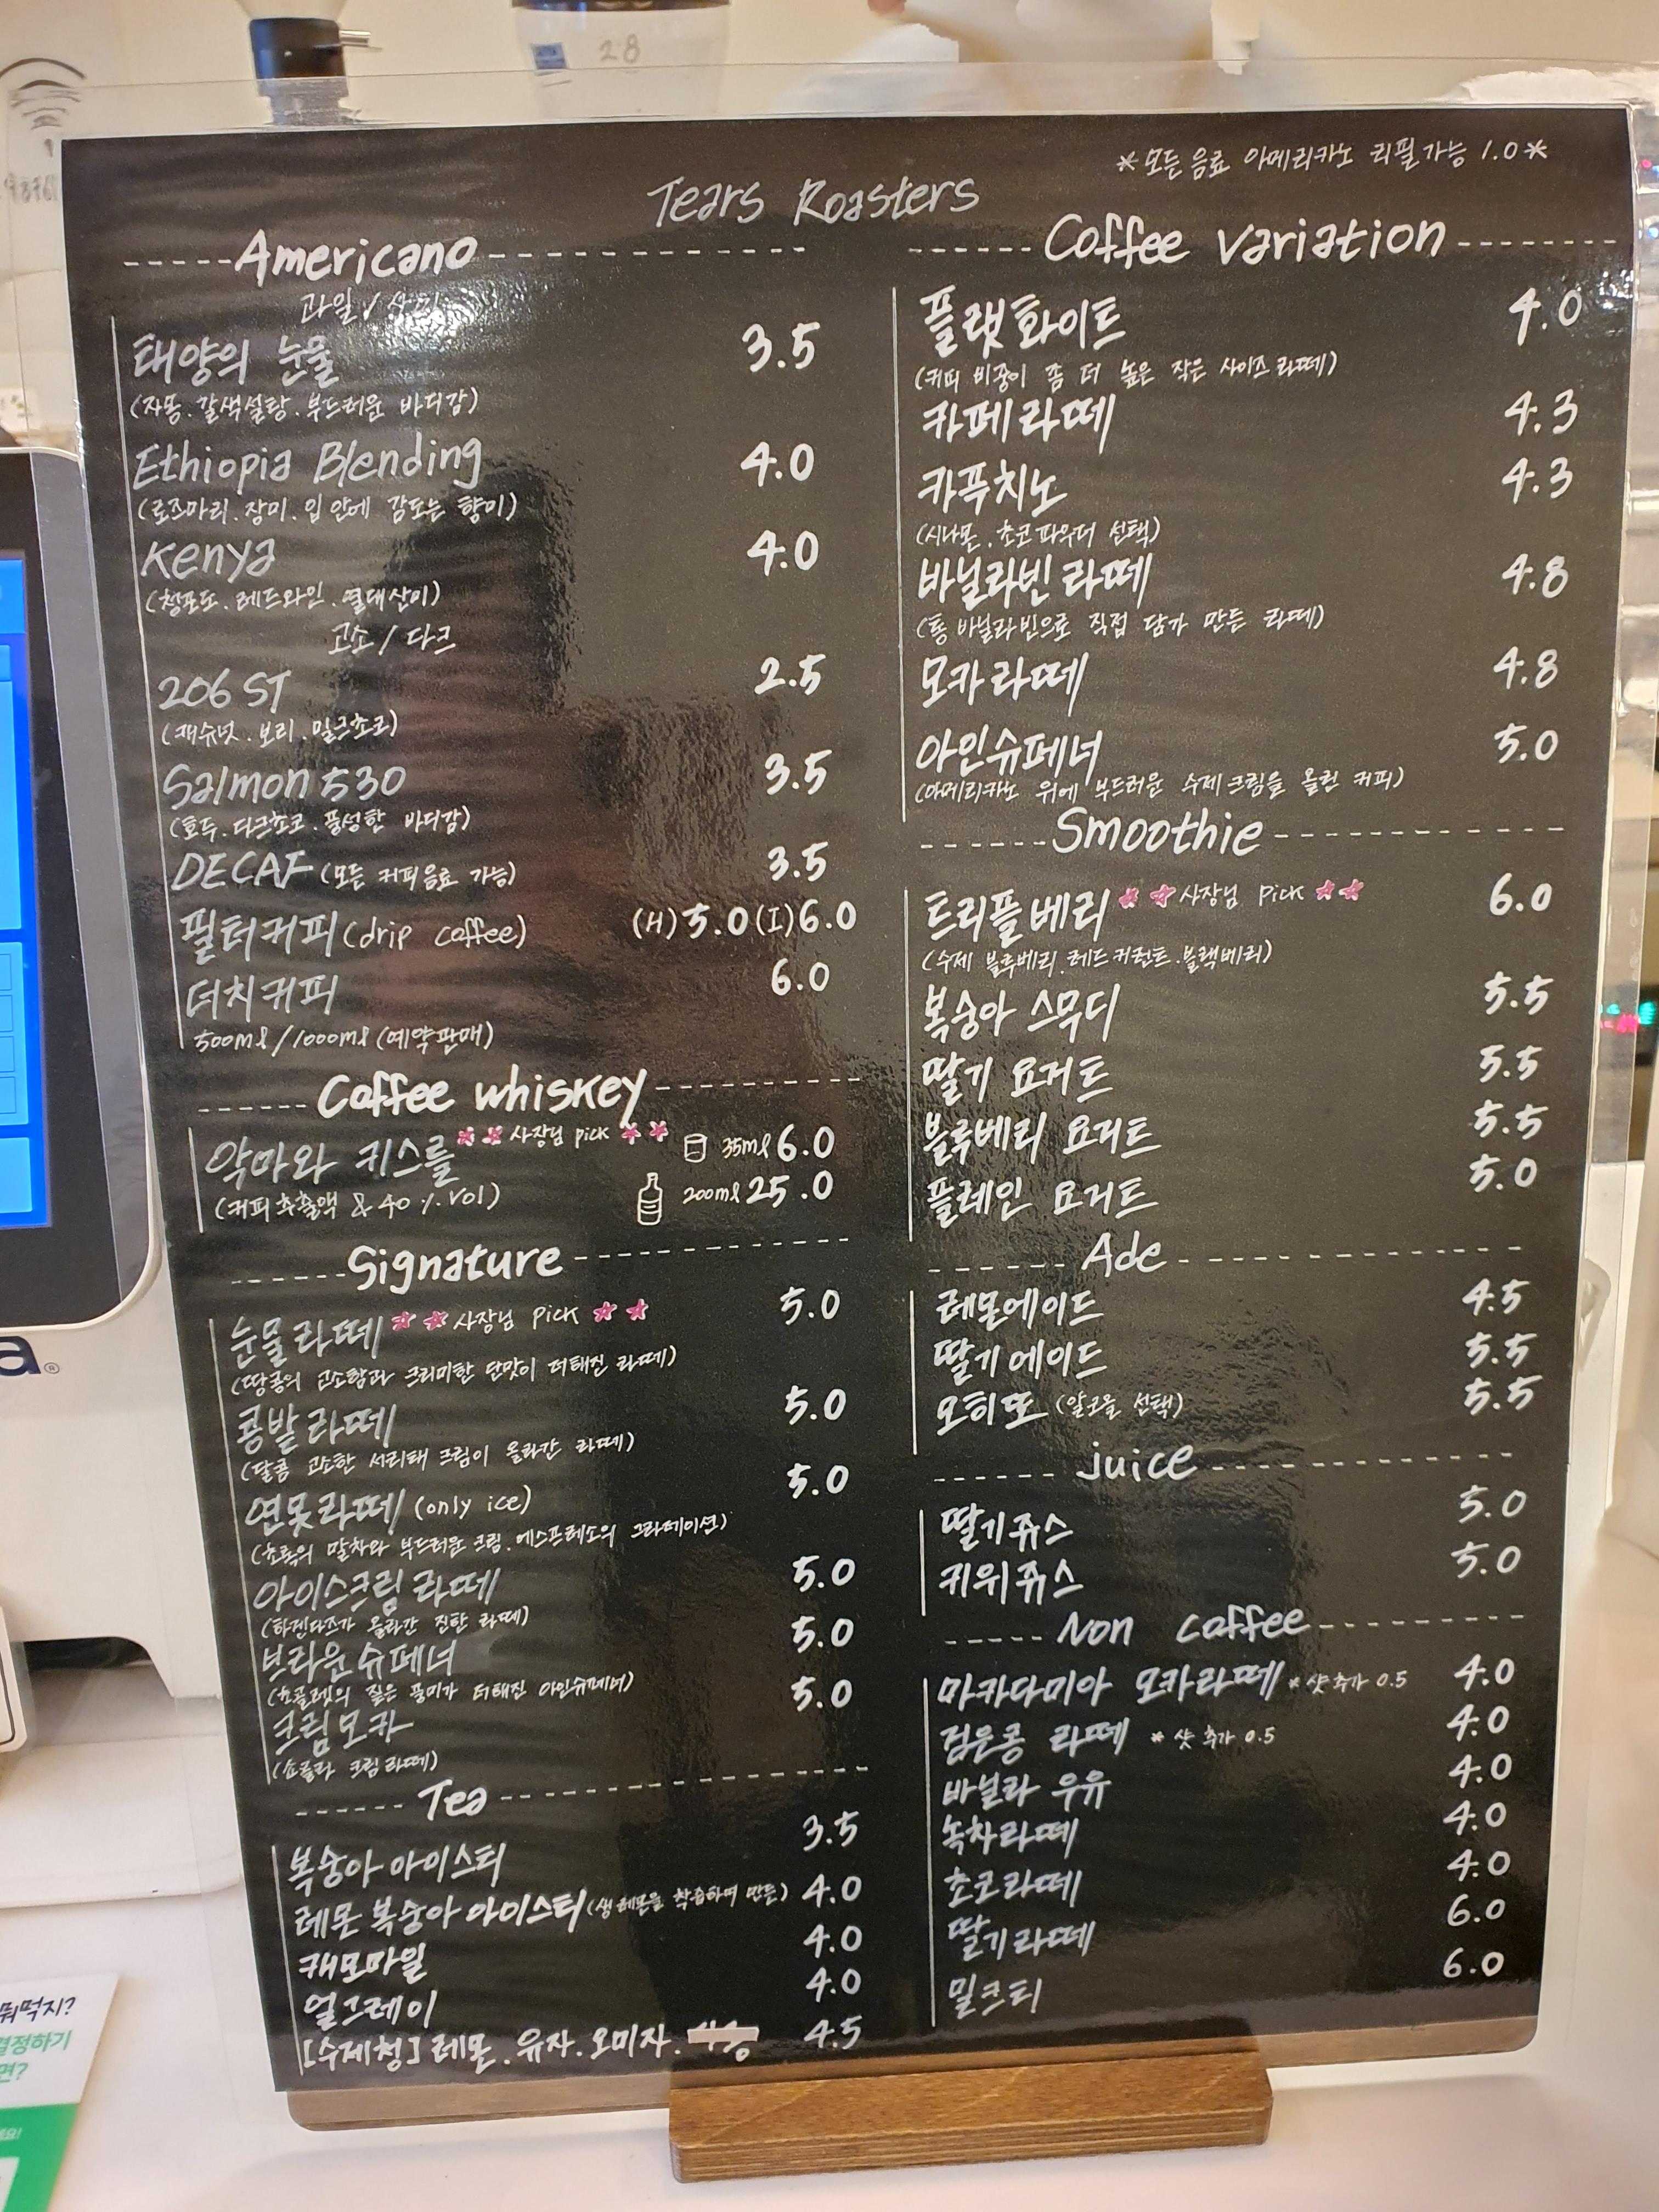 28
*모든 음료 아메리카노 리필가능 1.0*
Tears Roasters
Americano
과일/산미
태양의 눈물 3.5
(자몽.갈색설탕.부드러운 바디감)
Ethiopia Blending 4.0
(로즈마리.장미.입 안에 감도는 향미)
Kenya 4.0
(청포도.레드와인.열대산미)
고소/다크
206 ST 2.5
(캐슈넛.보리.밀크초코)
Salmon 530 3.5
(호두.다크초코.풍성한 바디감)
DECAF (모든 커피음료 가능) 3.5
필터커피(drip coffee) (H)5.0(I)6.0
더치커피 6.0
500ml/1000ml(예약판매)
Coffee whiskey
악마와 키스를 사장님 pick 35ml 6.0
(커피추출액 & 40%.vol) 200ml 25.0
Signature
눈물라떼 사장님 pick 5.0
(땅콩의 고소함과 크리미한 단맛이 더해진 라떼)
콩밭라떼 5.0
(달콤 고소한 서리태 크림이 올라간 라떼)
연못라떼 (only ice) 5.0
(초록의 말차와 부드러운 크림.에스프레소의 그라데이션)
아이스크림 라떼 5.0
(하겐다즈가 올라간 진한 라떼)
브라운슈페너 5.0
(초콜렛의 짙은 풍미가 더해진 아인슈페너)
크림모카 5.0
(쇼콜라 크림라떼)
Tea
복숭아 아이스티 3.5
레몬 복숭아 아이스티(생레몬을 착즙하여 만든) 4.0
캐모마일 4.0
얼그레이 4.0
[수제청] 레몬.유자.오미자. 4.5
Coffee variation
플랫화이트 4.0
(커피 비중이 좀 더 높은 작은 사이즈 라떼)
카페라떼 4.3
카푸치노 4.3
(시나몬.초코파우더 선택)
바닐라빈라떼 4.8
(통 바닐라빈으로 직접 담가 만든 라떼)
모카라떼 4.8
아인슈페너 5.0
(아메리카노 위에 부드러운 수제크림을 올린 커피)
Smoothie
트리플베리 사장님 pick 6.0
(수제 블루베리.레드커런트.블랙베리)
복숭아 스무디 5.5
딸기 요거트 5.5
블루베리 요거트 5.5
플레인 요거트 5.0
Ade
레몬에이드 4.5
딸기에이드 5.5
모히또 (알코올 선택) 5.5
juice
딸기쥬스 5.0
키위쥬스 5.0
Non coffee
마카다미아 모카라떼 *샷추가 0.5 4.0
검은콩 라떼 *샷추가 0.5 4.0
바닐라 우유 4.0
녹차라떼 4.0
초코라떼 4.0
딸기라떼 6.0
밀크티 6.0
뭐먹지?
결정하기
면?